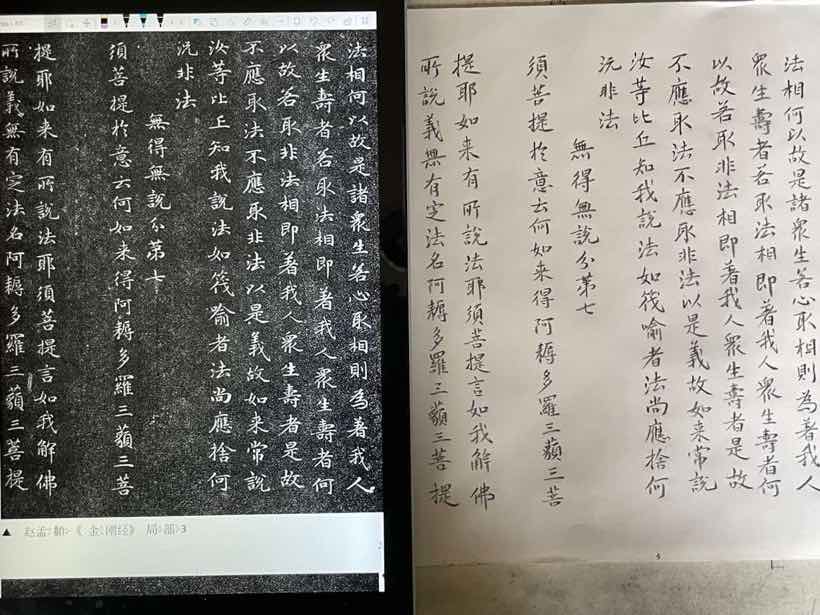 法相何以故是諸衆生若心取相則為著我人
衆生壽者若取法相即著我人衆生壽者何
以故若取非法相即著我人衆生壽者是故
不應取法不應取非法以是義故如来常說
汝等比丘知我說法如筏喻者法尚應捨何
况非法
無得無說分第七
須菩提於意云何如来得阿耨多羅三藐三菩
提耶如来有所說法耶須菩提言如我解佛
所說義無有定法名阿耨多羅三藐三菩提
▲ 赵孟頫《金刚经》局部3
法相何以故是諸衆生若心取相則為著我人
衆生壽者若取法相即著我人衆生壽者何
以故若取非法相即著我人衆生壽者是故
不應取法不應取非法以是義故如来常說
汝等比丘知我說法如筏喻者法尚應捨何
况非法
無得無說分第七
須菩提於意云何如来得阿耨多羅三藐三菩
提耶如来有所說法耶須菩提言如我解佛
所說義無有定法名阿耨多羅三藐三菩提